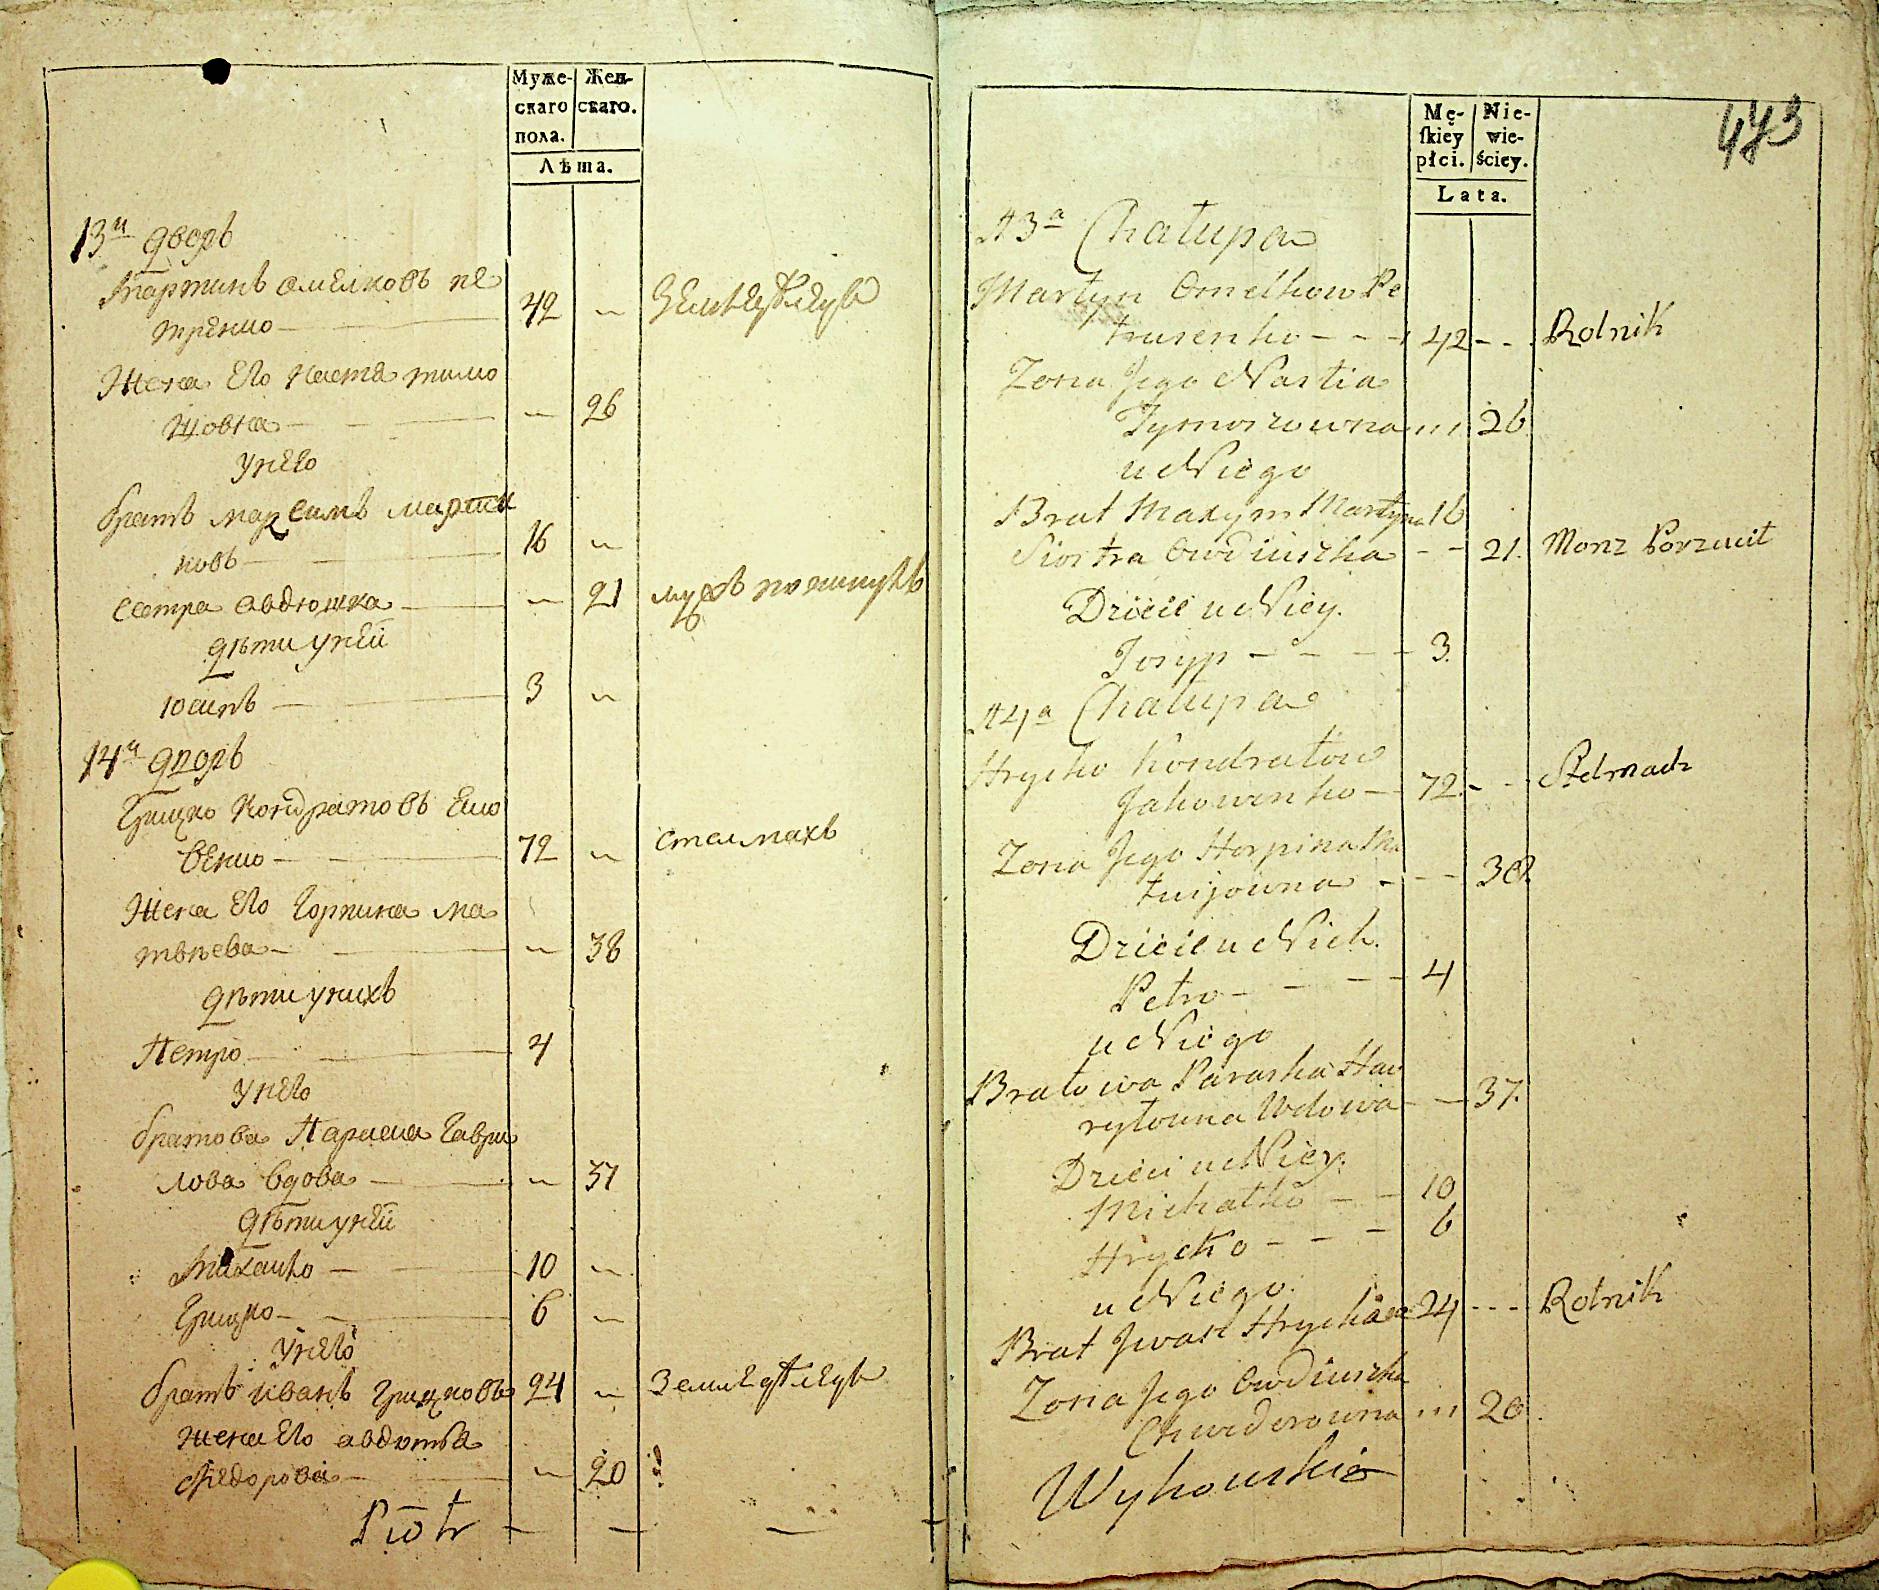 Муже-
скаго
пола.
Жен-
скаго.
Лѣта.
13й дворъ
Мартинъ омелковъ пе
тренко 42 земледѣлецъ
Жена Его Настя тимо
щовна 26
у него
братъ мар симъ марти
новъ 16
сестра овдюшка 21 мужъ покинулъ
дѣти у ней
юсипъ 3
14й дворъ
Грицко Кондратовъ Яко
венко 72 стельмахъ
Жена Его Горпина ма
твѣева 38
дѣти у нихъ
Петро 4
у него
братова Параска Гаври
лова вдова 37
дѣти у ней
Михайло 10
Грицко 6
у него
братъ иванъ Грицковъ 24 земледѣлецъ
жена Его авдотья
Федорова 20
Piotr
473
Mę-
ſkiey
płci.
Nie-
wie-
ściey.
Lata.
13a Chałupa
Martyn Omelkow Pe
trusenko 42 Rolnik
Zona Jego Nastia
Tymoszowna 26
u Niego
Brat Maxym Martyna 16
Siostra Owdiuszka 21. Monz Porzucił
Dzieci u Niey.
Josyp 3.
14a Chałupa
Hrycko Kondratow
Jakowenko 72. Stelmach
Zona Jego Horpina Ma
twijowna 38.
Dzieci u Nich.
Petro 4
u Niego
Bratowa Paraska Haw
ryłowna Wdowa 37.
Dzieci u Niey.
Michałko 10
Hrycko 6
u Niego.
Brat Jwan Hryckow 24 Rolnik
Zona Jego Owdiuszka
Chwedorowna 20.
Wyhowski